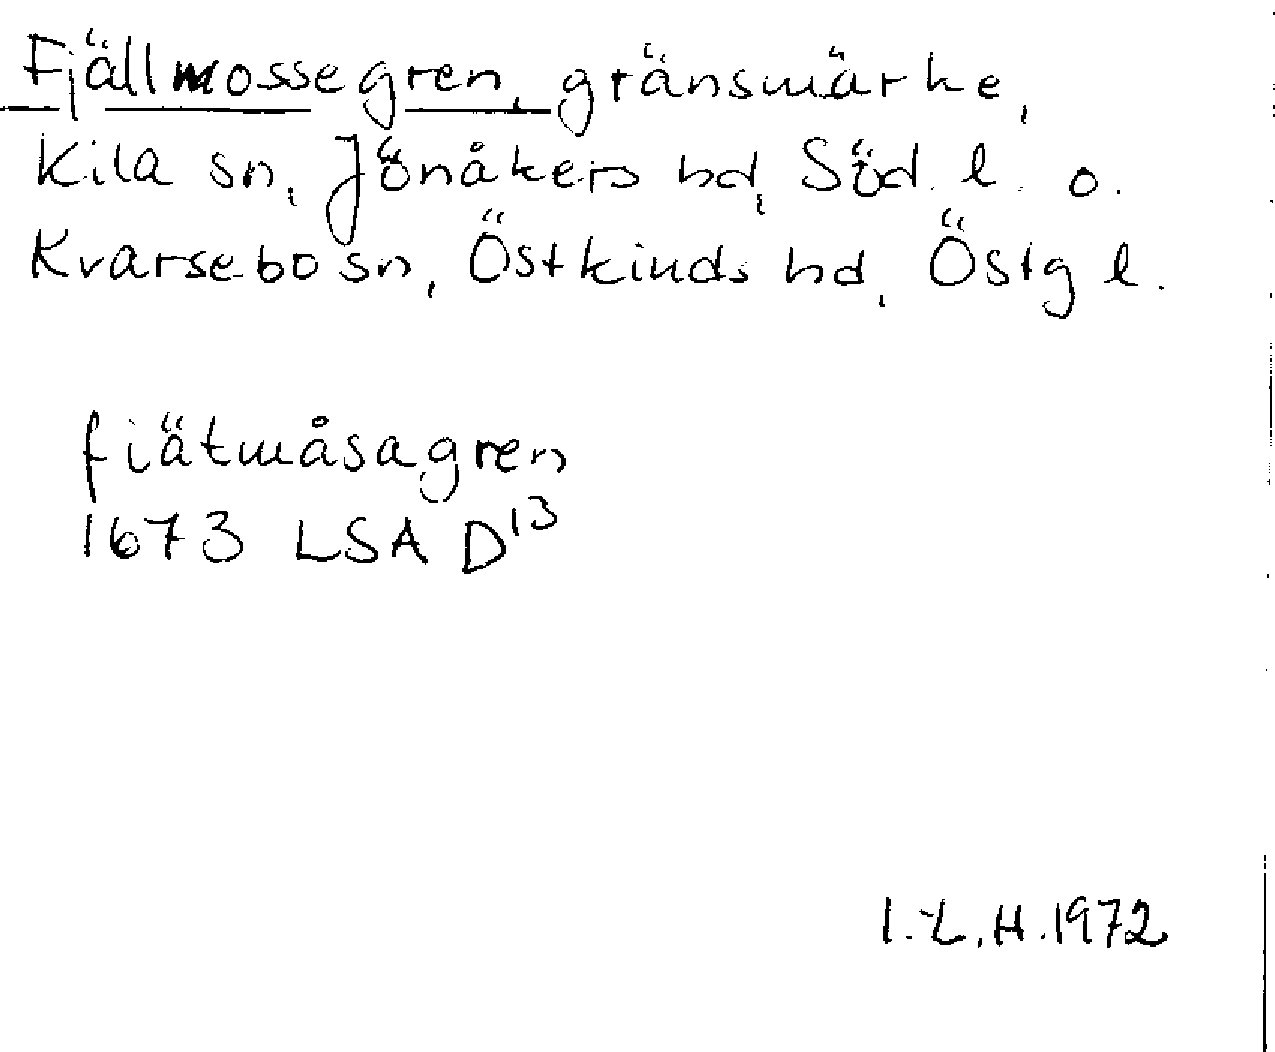 Fjällmossegren, gränsmärke,
Kila sn, Jönåkers hd, Söd. l. o.
Kvarsebo sn, Östkinds hd, Östg l.
fiätmåsagren
1673 LSA D13
I.L.H.1972